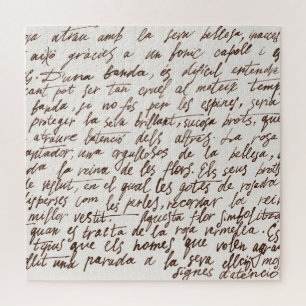 atrau amb la seva bellesa, inacces
això gràcies a un bonic capoll i e
D'una banda, és difícil entendre
cant pot ser tan cruel al mateix temp
banda, si no fos per les espines, seria
protegir la seva brillant, sucosa brots, que
atraure l'atenció dels altres. La rosa
antador, una orgullosos de la bellesa, a
da la reina de les flors. Els seus brots
le vellut, en el qual les gotes de rosada
disperses com les perles, recordar la rei
millor vestit. Aquesta flor simbolitza
quan es tracta de la roja vermella. És
que els homes, que volen
una parada a la seva
signes d'atenció